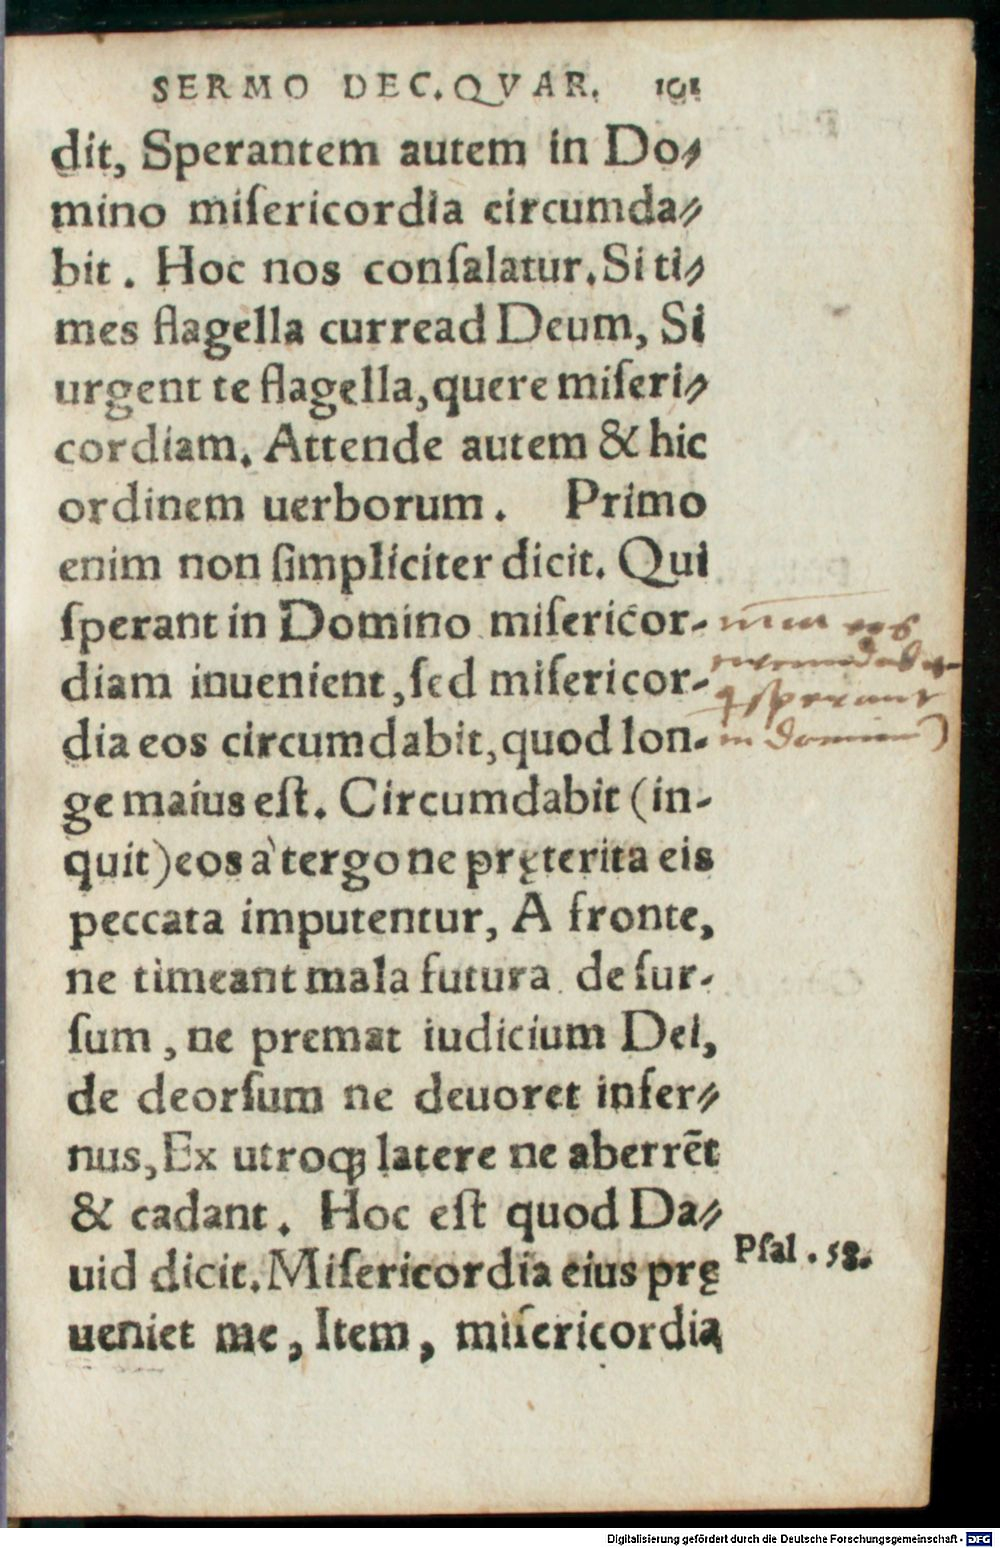 SERMO DEC. QVAR. 101
dit, Sperantem autem in Do⸗
mino miſericordia circumda⸗
bit. Hoc nos conſalatur. Si ti⸗
mes flagella curread Deum, Si
urgent te flagella, quere miſeri⸗
cordiam. Attende autem & hic
ordinem uerborum. Primo
enim non ſimpliciter dicit. Qui
ſperant in Domino miſericor-
diam inuenient, ſed miſericor-
dia eos circumdabit, quod lon-
ge maius eſt. Circumdabit (in-
quit) eos à tergo ne pręterita eis
peccata imputentur, A fronte,
ne timeant mala futura de ſur-
ſum, ne premat iudicium Dei,
de deorſum ne deuoret infer⸗
nus, Ex utroqꝫ latere ne aberrēt
& cadant. Hoc eſt quod Da⸗
uid dicit. Miſericordia eius prę
ueniet me, Item, miſericordia
sperant
in domino
Pſal. 58.
Digitalisierung gefördert durch die Deutsche Forschungsgemeinschaft - DFG